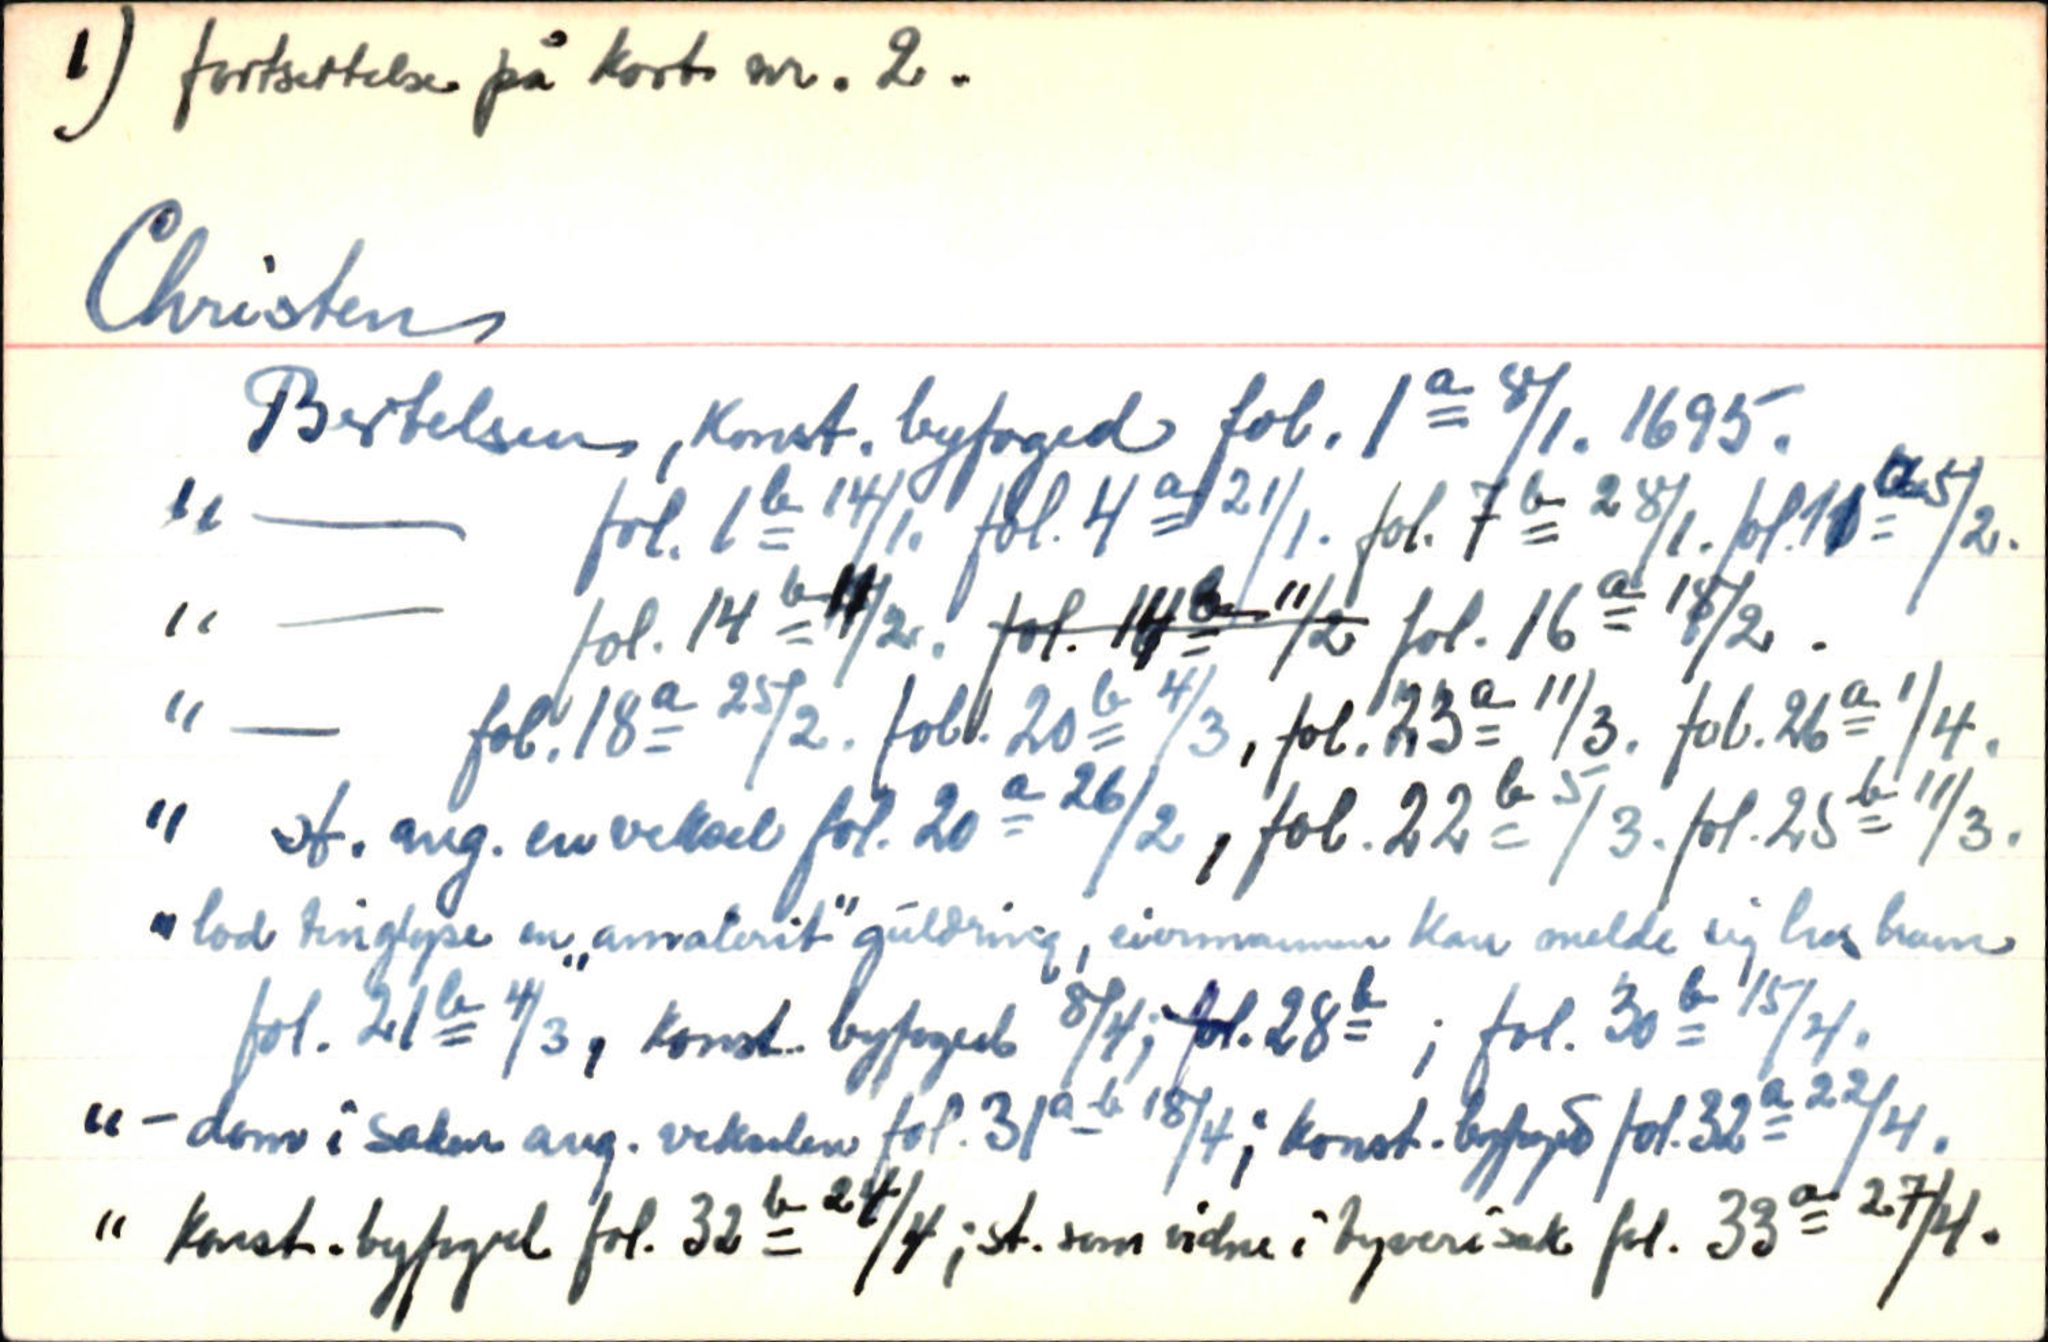 1) fortsettelse på kort nr. 2.
Christen
Bertelsen, konst. byfoged fol. 1a 8/1. 1695.
" — fol. 1b 14/1. fol. 4a 21/1. fol. 7b 28/1. fol. 11a 5/2.
" — fol. 14b 11/2. fol. 14b 11/2 fol. 16a 18/2.
" — fol. 18a 25/2. fol. 20b 4/3, fol. 23a 11/3. fol. 26a 1/4.
" st. ang. en veksel fol. 20a 26/2, fol. 22b 5/3. fol. 25b 11/3.
" lod tinglyse en „amalerit" guldring, eiermannen kan melde sig hos ham
fol. 21b 4/3, konst. byfoged 8/4; fol. 28b; fol. 30b 15/4.
" - dom i saken ang. vekselen fol. 31a-b 18/4; konst. byfoged fol. 32a 22/4.
" konst. byfoged fol. 32b 24/4; st. som vidne i tyverisak fol. 33a 27/4.